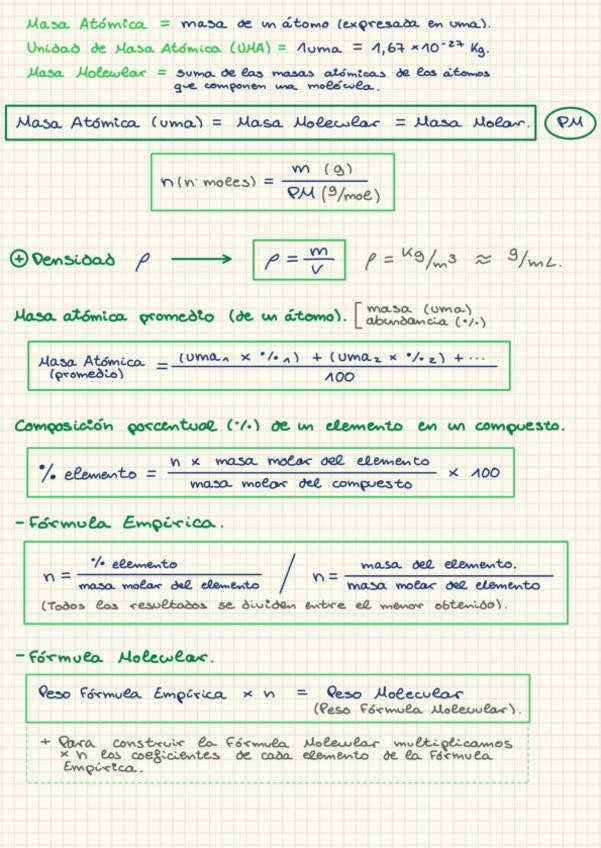 Masa Atómica = masa de un átomo (expresada en uma).
Unidad de Masa Atómica (UMA) = 1uma = 1,67 × 10⁻²⁷ Kg.
Masa Molecular = suma de las masas atómicas de los átomos
que componen una molécula.
Masa Atómica (uma) = Masa Molecular = Masa Molar. PM
n (n· moles) = m (g) / PM (g/mol)
⊕ Densidad ρ ⟶ ρ = m / v ρ = Kg/m³ ≈ g/mL.
Masa atómica promedio (de un átomo). [ masa (uma)
abundancia (%)
Masa Atómica (promedio) = (uma₁ × %₁) + (uma₂ × %₂) + ··· / 100
Composición porcentual (%) de un elemento en un compuesto.
% elemento = n × masa molar del elemento / masa molar del compuesto × 100
- Fórmula Empírica.
n = % elemento / masa molar del elemento / n = masa del elemento. / masa molar del elemento
(Todos los resultados se dividen entre el menor obtenido).
- Fórmula Molecular.
Peso Fórmula Empírica × n = Peso Molecular
(Peso Fórmula Molecular).
+ Para construir la Fórmula Molecular multiplicamos
× n los coeficientes de cada elemento de la Fórmula
Empírica.